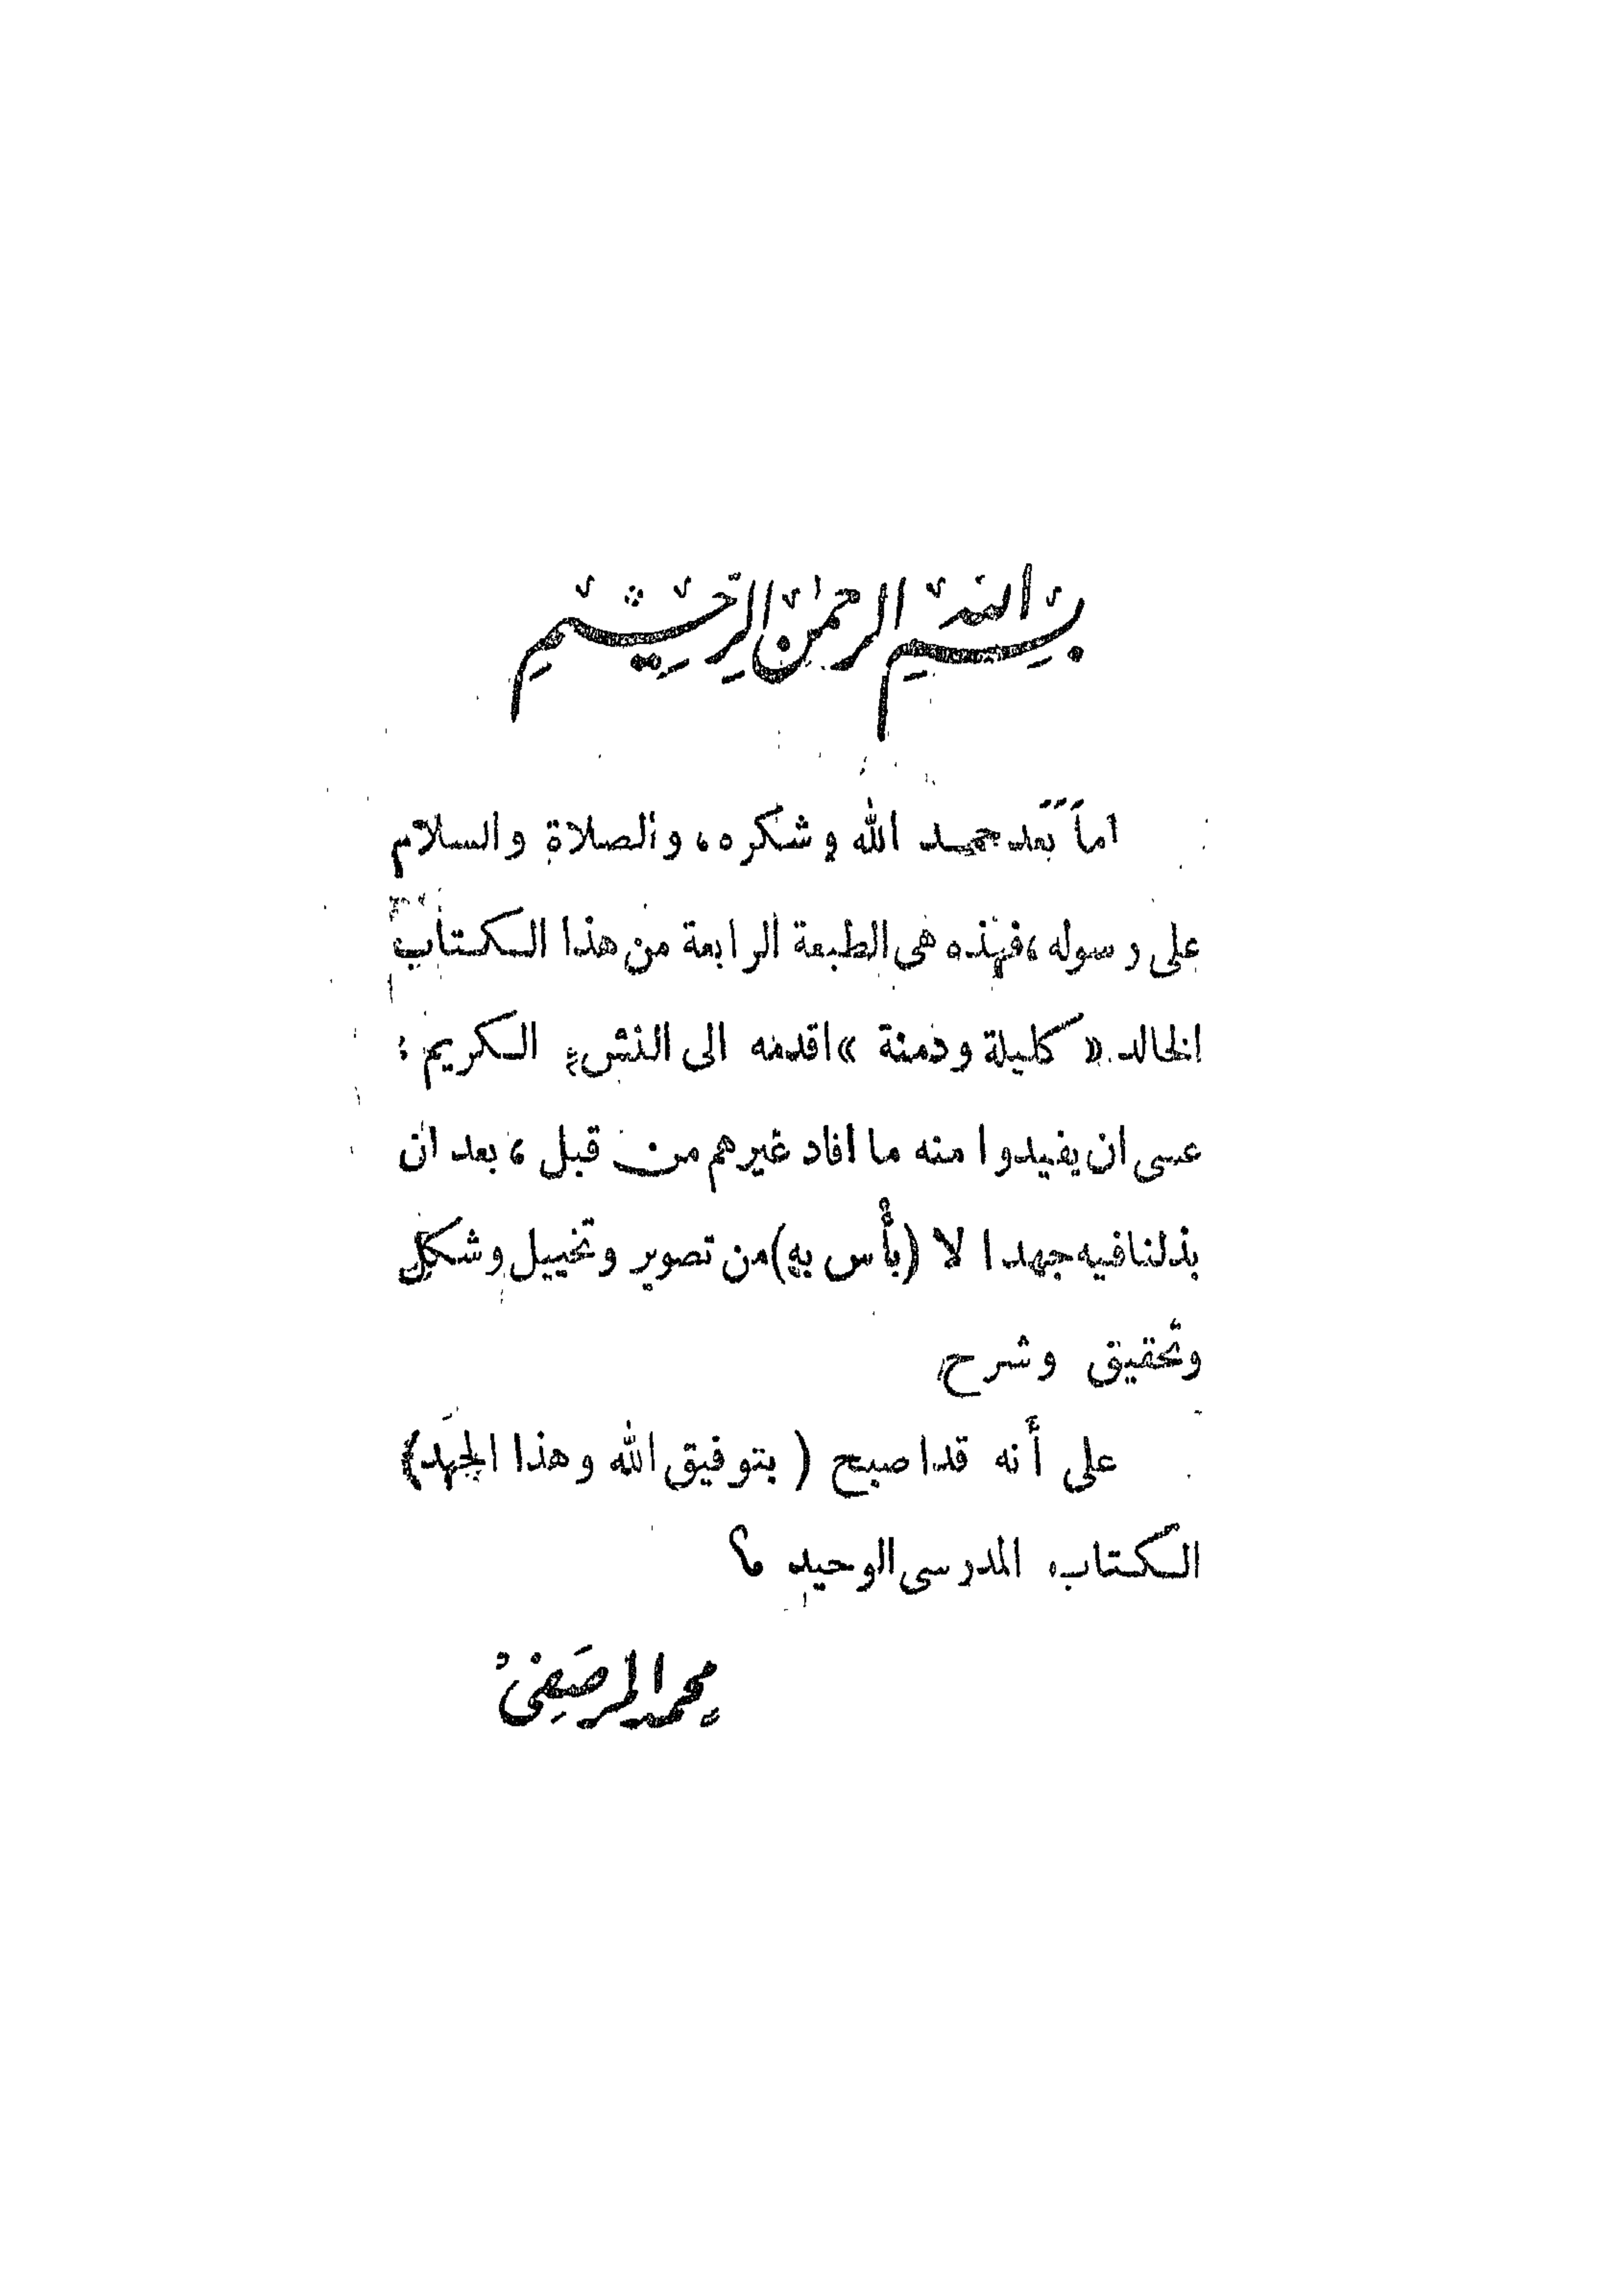 بِسْمِ اللهِ الرَّحْمٰنِ الرَّحِيْمِ
اما بعد حمد الله وشكره، والصلاة والسلام
على رسوله، فهذه هى الطبعة الرابعة من هذا الكتاب
الخالد « كليلة ودمنة » اقدمه الى النشء الكريم :
عسى ان يفيدوا منه ما افاد غيرهم من قبل، بعد ان
بذلنا فيه جهدا لا (بأس به) من تصوير وتخييل وشكل
وتحقيق وشرح
على أنه قد اصبح ( بتوفيق الله وهذا الجهَد)
الكتاب المدرسى الوحيد ؟
محمد المرصَفِى